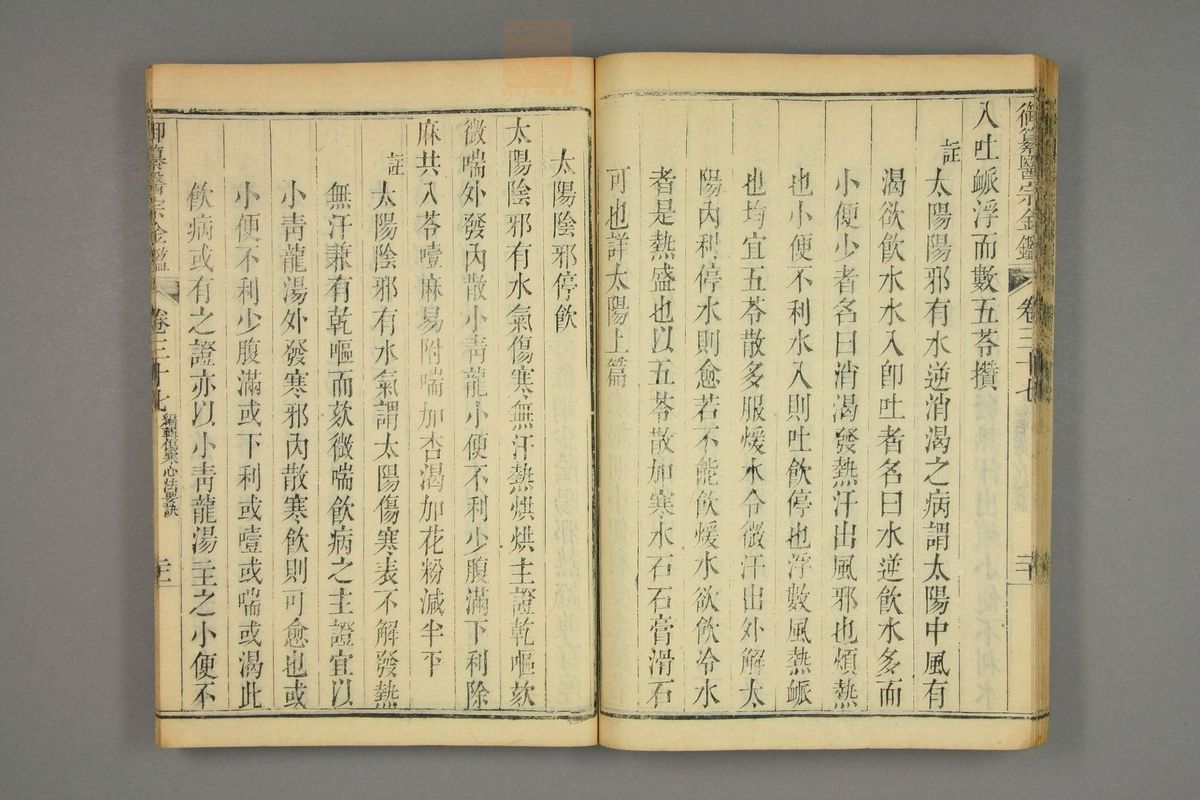 御纂醫宗金鑑 卷三十七 三十
入吐脈浮而數五苓攢
註
太陽陽邪有水逆消渴之病謂太陽中風有
渴欲飲水水入卽吐者名曰水逆飲水多而
小便少者名曰消渴發熱汗出風邪也煩熱
也小便不利水入則吐飲停也浮數風熱脈
也均宜五苓散多服煖水令微汗出外解太
陽內利停水則愈若不能飲煖水欲飲冷水
者是熱盛也以五苓散加寒水石石膏滑石
可也詳太陽上篇
太陽陰邪停飲
太陽陰邪有水氣傷寒無汗熱烘烘主證乾嘔欬
微喘外發內散小青龍小便不利少腹滿下利除
麻共入苓噎麻易附喘加杏渴加花粉減半下
註
太陽陰邪有水氣謂太陽傷寒表不解發熱
無汗兼有乾嘔而欬微喘飲病之主證宜以
小青龍湯外發寒邪內散寒飲則可愈也或
小便不利少腹滿或下利或噎或喘或渴此
飲病或有之證亦以小青龍湯主之小便不
御纂醫宗金鑑 卷三十七 編輯傷寒心法要訣